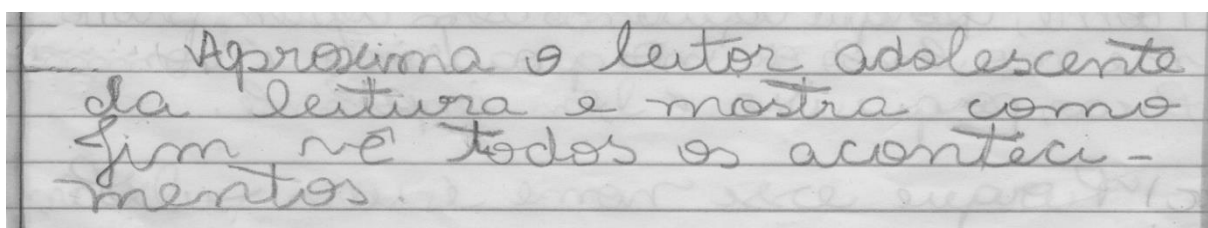 Aproxima o leitor adolescente
da leitura e mostra como
Jim vê todos os aconteci-
mentos.